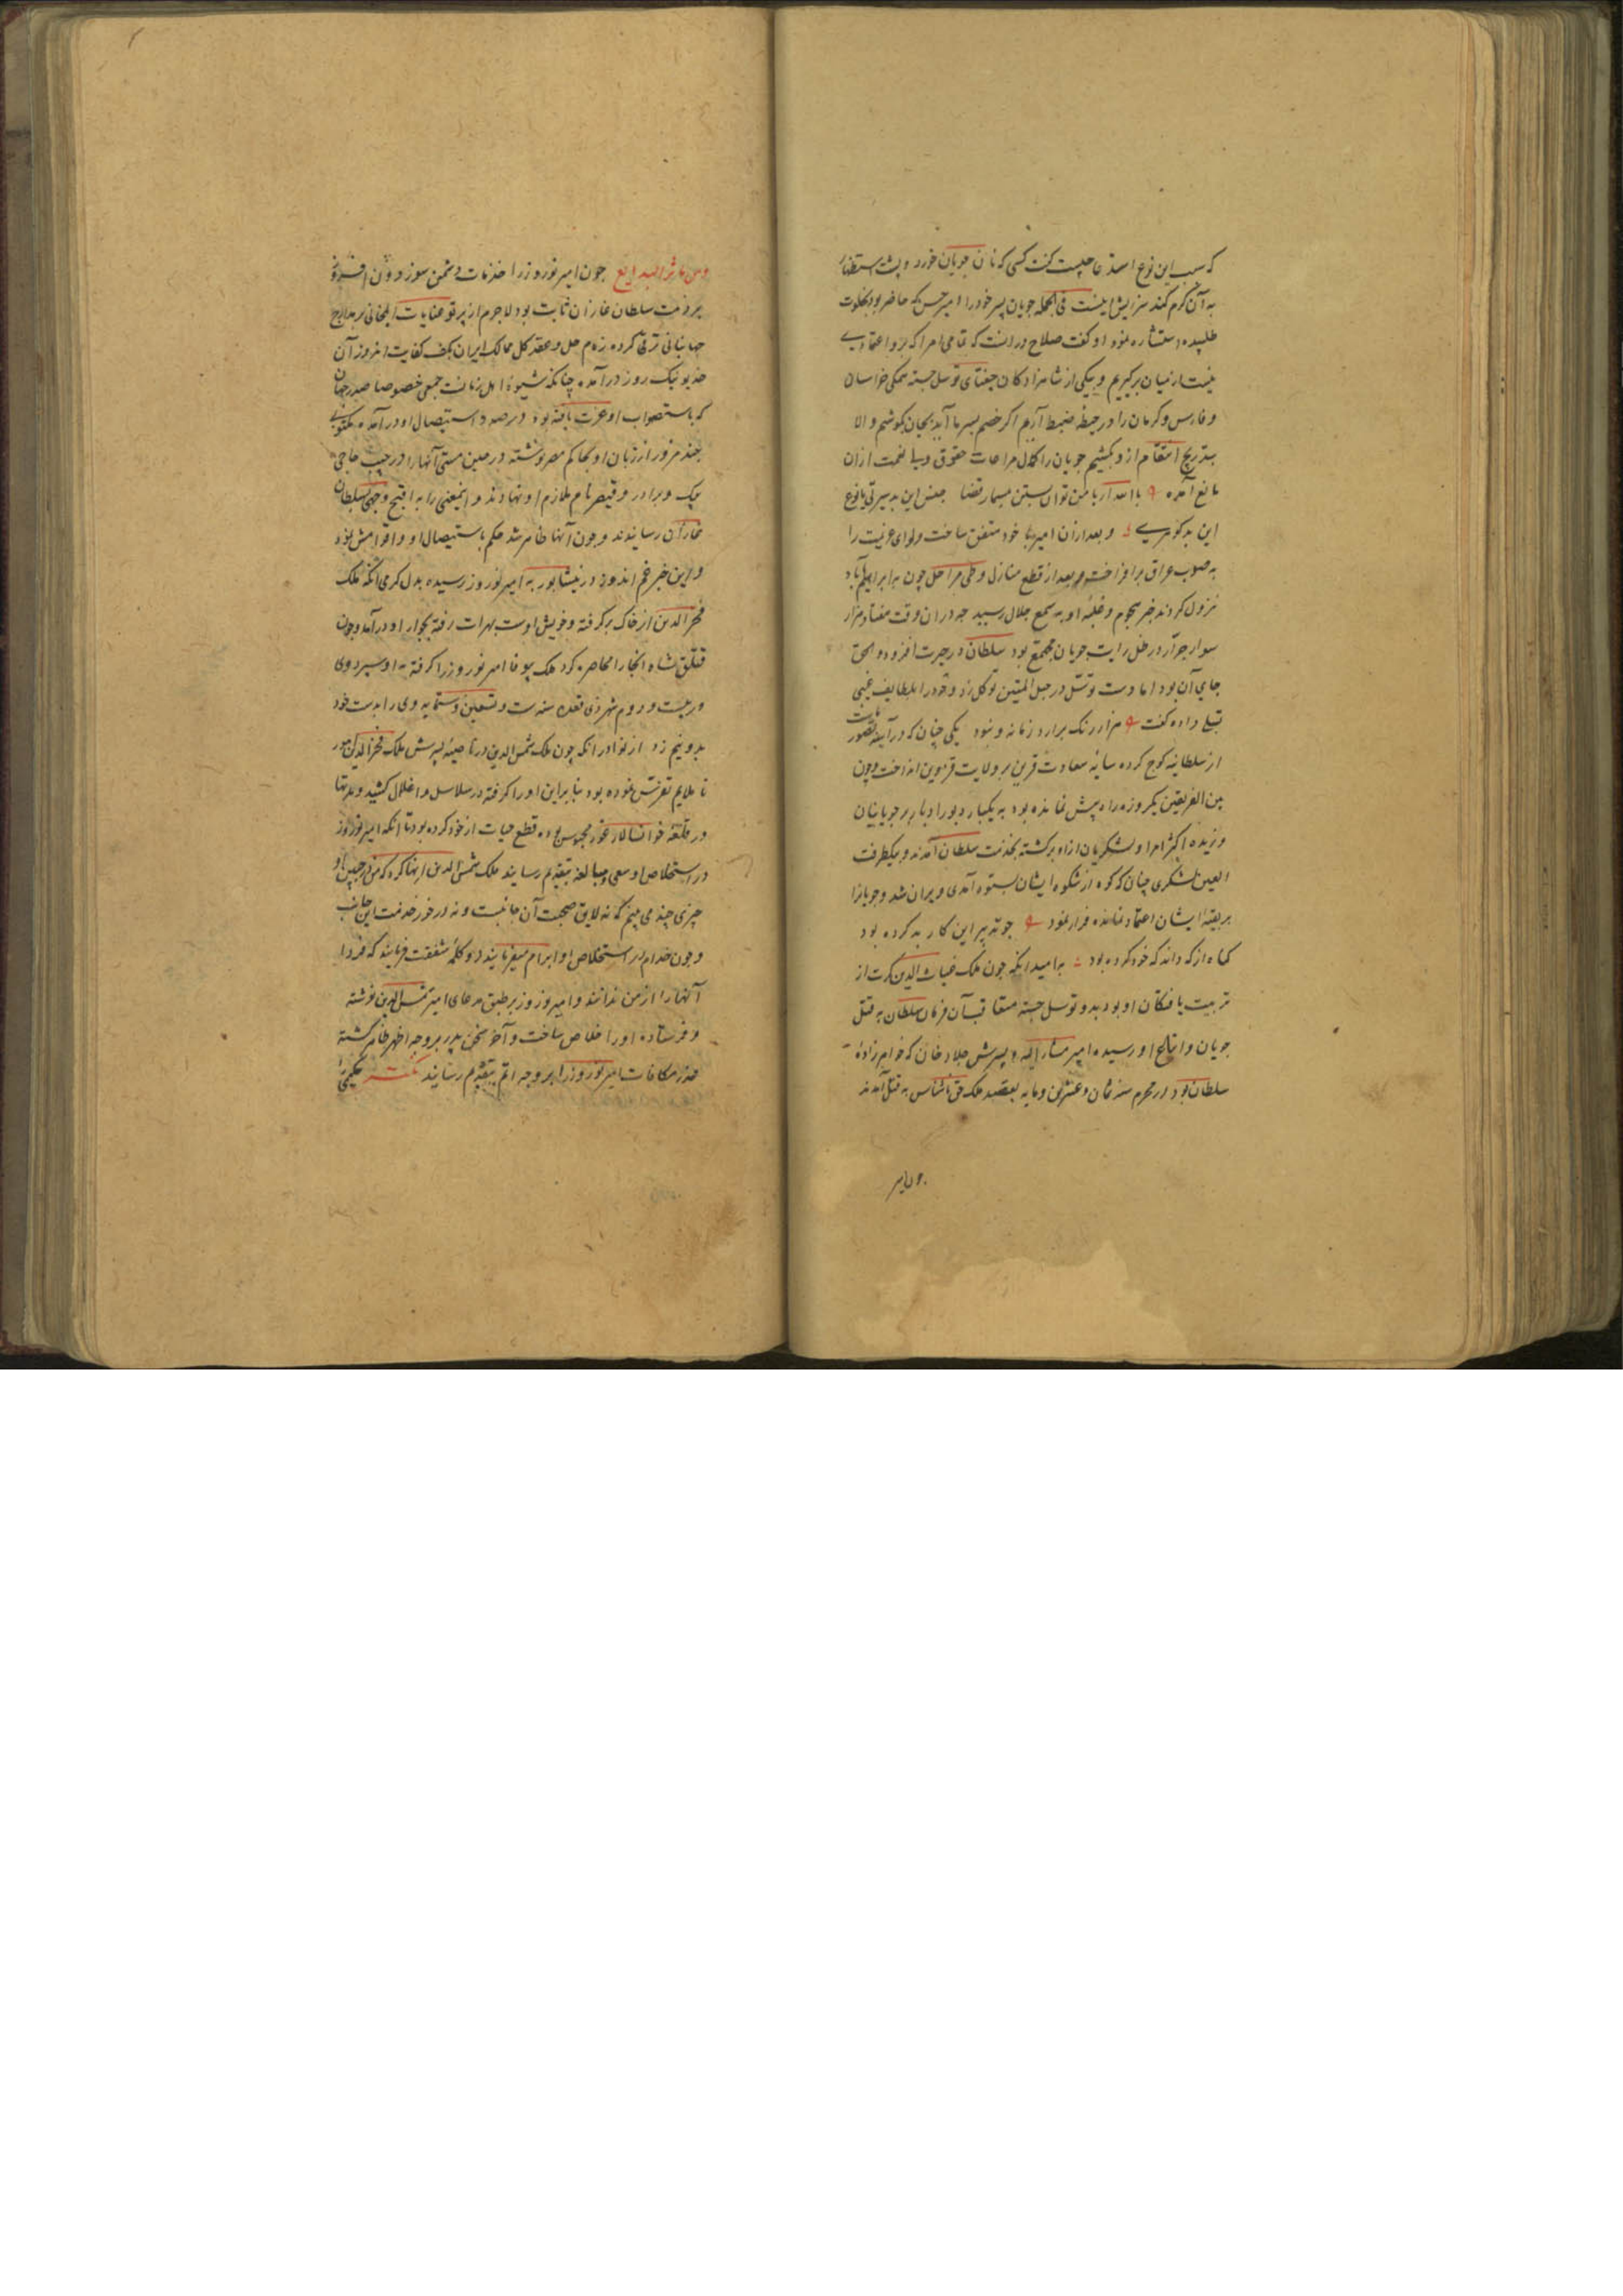 که سبب این نوع استدعا چیست گفت کسی که نان جوپان خورد و پشت استظهار
به آن گرم کند سزایش اینست فی الجمله جوپان پسر خود را امیر حسن که حاضر بود بخلوت
طلبیده استشاره نمود او گفت صلاح در انست که تمامی امرا که برو اعتمادی
نیست از میان برگیریم و بیکی از شاهزادکان جغتای توسل جسته ممالک خراسان
و فارس و کرمان را در حیطه ضبط آریم اکر خصم بسر ما آید بجان بکوشیم و الا
بتدریج انتقام ازو بکشیم جوپان را کمال مراعات حقوق ولی نعمت ازان
مانع آمده با
این بد گوهری و بعد ازان امیر با خود متفق ساخت و لوای عزیمت را
به صوب عراق برافراخته و بعد از قطع منازل و طی مراحل چون به ابراهیم آباد
نزول کردند خبر هجوم و غلبه او به سمع جلال رسید چه دران وقت هفتاد هزار
سوار جرار در ظل رایت جوپان مجتمع بود سلطان در حیرت افزوده و الحق
جای آن بود اما دست توسل در حبل المتین توکل زد و خود را بلطایف غیبی
تسلی داده گفت هزار رنگ برارد زمانه و نبود یکی چنان که در آینه تصور ماست
از سلطانیه کوچ کرده سایه سعادت قرین بر ولایت قزوین انداخت و چون
بین الفریقین یکروزه راه پیش نمانده بود به یکبار دبور ادبار بر جوپانیان
وزیده اکثر امرا و لشکریان ازو برگشته بخدمت سلطان آمدند و بیکطرفت
العین لشکری چنان که کوه از شکوه ایشان بستوه آمدی ویران شد و جوپانرا
بر بقیه ایشان اعتماد نمانده فرار نمود چو تدبیر این کار بد کرده بود
گناه از که داند که خود کرده بود به امید انکه چون ملک غیاث الدین کرت از
تربیت یافتکان او بود بدو توسل جسته متعاقب آن فرمان سلطان به قتل
جوپان و اتباع او رسیده امیر مشار الیه و پسرش جلاو خان که خواهر زادهٔ
سلطان بود در محرم سنه ثمان و عشرین و مایه بقصد ملک حق ناشناس به قتل آمدند
و من مآثر البدایع چون امیر نوروز را خدمات دشمن سوز
بر ذمت سلطان غازان ثابت بود لاجرم از پرتو عنایات ایلخانی بر مدارج
جهانبانی ترقی کرده زمام حل و عقد کل ممالک ایران بکف کفایت
در آمده چنانکه شیوهٔ اهل زمانست جمعی خصوصا صدر جهان
که باستصواب او عزت یافته بود در صدد استیصال او در آمده مکتوبی
چند مزور از زبان او بحاکم مصر نوشته در حین مستی آنها را در جیب حاجی
بیک و برادر و قیصر نام ملازم او نهادند و اینمعنی را به اقبح وجهی بسلطان
غازان رسانیدند و چون آنها ظاهر شد حکم باستیصال او و اقوامش نمود
و این خبر غم اندوز در نیشابور به امیر نوروز رسیده بدل کرمی انکه ملک
فخر الدین از خاک برگرفته و خویش اوست بهرات رفته بجوار او در آمد و چون
قتلق شاه انجا را محاصره کرد ملک بیوفا امیر نوروز را گرفته به او سپرد وی
در بیست و دوم شهر ذی قعده سنه ست و تسعین و ستمایه وی را بدست خود
بدو نیم زد از نوادر انکه چون ملک شمس الدین در ناصیهٔ پسرش ملک فخر الدین
ناملایم تفرس نموده بود بنابراین او را گرفته در سلاسل و اغلال کشید و مدتها
در قلعه خوانسالار غور محبوس بوده قطع حیات از خود کرده بود تا انکه امیر نوروز
در استخلاص او سعی و مبالغه بتقدیم رسانید ملک شمس الدین انها کرد که من در جبین او
چیزی چند می بینم که نه لایق صحبت آن جانبست و نه در خور خدمت این جانب
و چون خدام در استخلاص او ابرام میفرمایند دو کلمه شفقت فرمایند که فردا
آنها را از من ندانند و امیر نوروز بر طبق مدعای امیر شمس الدین نوشته
و فرستاده او را خلاص ساخت و آخر سخن پدر بر وجه اظهر ظاهر گشته
عذر مکافات امیر نوروز را بر وجه اتم بتقدیم رسانید حکیمی